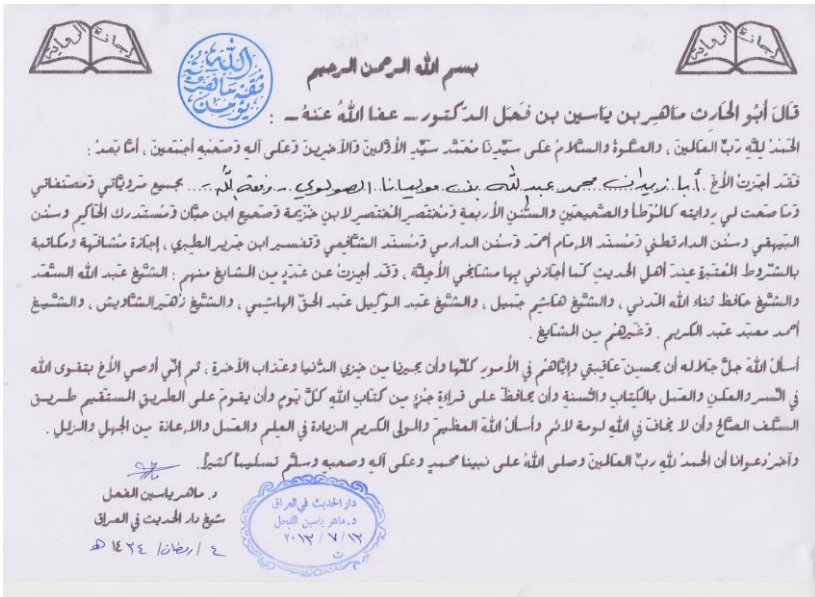 إجازة الرواية
إجازة الرواية
الله
ثقتي بالله وبه
يؤمن
بسم الله الرحمن الرحيم
قَالَ أَبُو الحَارِث مَاهِر بن يَاسين بن فَحَل الدّكتور - عفا اللهُ عَنهُ - :
الحَمدُ لِلّهِ رَبِّ العَالمينَ ، والصَّلوةُ والسَّلامُ على سَيِّدنا مُحَمَّد سَيِّدِ الأَوَّلينَ وَالآخِرينَ وَعلى آلهِ وَصَحبهِ أَجمَعينَ ، أَمَّا بَعدُ :
فَقَد أَجَزتُ الأخَ .أبا زيدان محمد عبد لله بن مولیانا الصولوي - وفقه الله - .. بجميع مَرويَّاتي وَمُصنفاتي
وَمَا صَحت لي روايته كالمُوَطأ والصَّحيحَينِ والسُّنَنِ الأَربعةِ وَمُختَصر المُختَصر لابن خُزَيمة وَصَحيح ابن حبَّان وَمُستَدرك الحَاكِم وسنن
البَيهقي وسُنن الدارقطني وَمُسنَد الإمام أحمَد وَسُنن الدارمي وَمُسنَد الشَّافِعي وَتفسير ابن جَرير الطبري ، إجَازة مُشافهة ومكاتبة
بالشّروط المُعتَبرةِ عِندَ أهل الحَديثِ كَمَا أجَازَني بها مشايخي الأَجِلَّة ، وَقَد أجزتُ عن عَدَدٍ مِنَ المشايخِ منهم : الشَّيخ عَبد الله السَّعَد
والشَّيخ حافظ ثناء الله المَدني ، والشَّيخ هَاشِم جَميل ، والشَّيخ عَبد الوكيل عَبد الحَقّ الهاشِمي ، والشَّيخ زُهَير الشَّاويش ، والشَّيخ
أحمد معبَد عَبد الكريم . وَغَيرهم مِنَ المشايخ .
أسألُ اللهَ جلَّ جَلاله أن يحسنَ عَاقِبتي وإيَّاهُم في الأُمورِ كُلّها وأن يجيرنا مِن خِزي الدُّنيا وعَذاب الآخرة ، ثم إنّي أوصي الأخَ بتقوى الله
في السّر والعَلَنِ والعَمل بالكِتابِ والسّنةِ وأن يحافظَ على قراءةِ جُزءٍ مِن كتابِ اللهِ كلَّ يَومٍ وأن يقومَ على الطريقِ المستَقيم طريق
السَّلفِ الصَّالح وأن لا يخافَ في اللهِ لومة لائمٍ وأسألُ اللهَ العظيم والمولى الكريم الزيادة في العِلم والعَمل والإعاذة مِنَ الجهلِ والزللِ .
وآخرُ دَعوانا أن الحمدُ للهِ ربِّ العالمين وصلى اللهُ على نبينا محمدٍ وعلى آلهِ وصحبهِ وسلَّم تسليماً كثيراً .
د. ماهر ياسين الفحل
شيخ دار الحديث في العراق
٤ / رمضان / ١٤٣٤ هـ
دار الحديث في العراق
د. ماهر ياسين الفحل
٢٠١٣ / ٧ / ١٣
ت